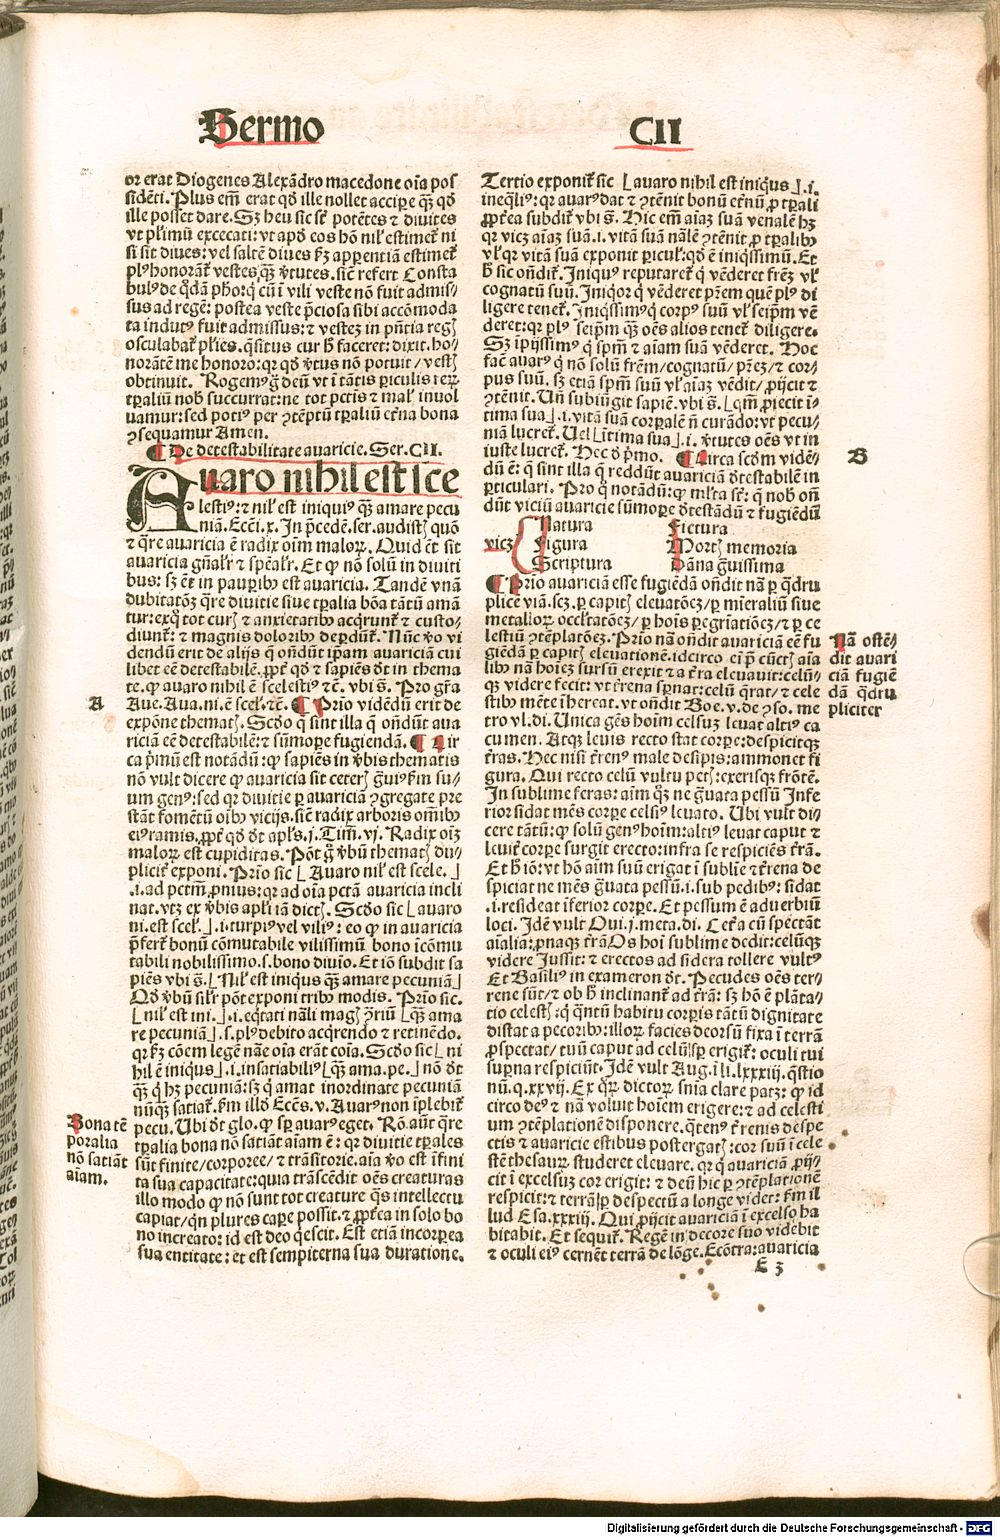 Sermo
CII
or erat Diogenes Alexãdro macedone oĩa pos
sidẽti. Plus em̃ erat qđ ille nollet accipe qȝ qđ
ille posset dare. Sȝ heu sic sĩt potẽtes ⁊ diuites
vt plimũ excecati: vt apđ eos hõ nil' estimet̃ ni
si sit diues: vel saltẽ diues ẜȝ apparentiã estimet̃
plꝰ honorãt̃ vestes qȝ v̾tutes. sic̃ refert Consta
bulꝰ de qđã ph̃o: q cũ ĩ vili veste nõ fuit admis/
sus ad regẽ: postea veste p̃ciosa sibi accõmoda
ta indutꝰ fuit admissus: ⁊ vestez in pñtia reg̃
osculabat̃ pl'ies. q̃situs cur h̾ faceret: dixit. ho/
norãtẽ me honoro: qꝛ qđ v̾tus nõ potuit/ vestꝭ
obtinuit. Rogemꝰ g̊ deũ vt ĩ tãtis piculis reꝝ
tp̃aliũ nob̾ succurrat: ne tot pctĩs ⁊ mal' inuol
uamur: sed potiꝰ per ꝯtẽptũ tp̃aliũ et̾na bona
ꝯsequamur Amen.
¶ De detestabilitate auaricie. Ser. CII.
Auaro nihil est sce
lestiꝰ: ⁊ nil' est iniquiꝰ qȝ amare pecu
niã. Ecci. x. In p̃cedẽ. ser. audistꝭ quõ
⁊ q̃re auaricia ẽ radix oĩm maloꝝ. Quid em̃ sit
auaricia gñal'r ⁊ sp̃eal'r. Et ꝙ nõ solũ in diuiti
bus: sȝ etĩ in pauꝑibꝰ est auaricia. Tandẽ vnã
dubitatõȝ q̃re diuitie siue tp̃alia bõa tãtũ amã
tur: ex quo tot curꝭ ⁊ anxietatibꝰ acq̃runt̃ ⁊ custo/
diunt̃: ⁊ magnis doloribꝰ deꝑdũt̃. Nũc v̾o vi
dendũ erit de alijs q̃ ondũt ip̃am auariciã cui
libet eẽ detestabilẽ. ꝓpt̾ qđ ⁊ sapiẽs dt̃ in thema
te. ꝙ auaro nihil ẽ scelestiꝰ ⁊c̃. vbi s̃. Pro gr̃a
Aue. Aua. ni. ẽ scel. ⁊c̃. ¶ Prĩo vidẽdũ erit de
expõne themat. Scđo q̃ sint illa q̃ ondũt aua
riciã eẽ detestabilẽ: ⁊ sũmoꝑe fugiendã. ¶ Cir
ca p̃mũ est notãdũ: ꝙ sapiẽs in v̾bis thematis
nõ vult dicere ꝙ auaricia sit ceterꝭ g̃uiꝰ ẜm su/
um genꝰ: sed qꝛ diuitie ꝑ auariciã ꝯgregate pre
stãt fomẽtũ oĩbꝰ vicijs. sic̃ radix arboris omĩbꝰ
eiꝰ ramis. ꝓpt̾ qđ dt̃ apl's. j. Tim̃. vj. Radix oĩȝ
maloꝝ est cupiditas. Põt g̊ v̾bũ themat du/
plicit̾ exponi. Prĩo sic ⌊ Auaro nil' est scele. ⌋
.i. ad pctm̃ ꝓniꝰ: qꝛ ad oĩa pctã auaricia incli
nat. vtȝ ex v̾bis apl'i iã dictꝭ. Scđo sic ⌊ auaro
ni. est scel. ⌋ .i. turpiꝰ vel viliꝰ: eo ꝙ in auaricia
p̃fert̃ bonũ cõmutabile vilissimũ. bono ĩcõmu
tabili nobilissimo. s. bono diuĩo. Et iõ subdit sa
piẽs vbi s̃. ⌊ Nil' est iniq̃us qȝ amare pecuniã ⌋
Qđ v̾bũ sil'r põt exponi tribꝰ modis. Prĩo sic.
⌊ nil' est ini. ⌋ .i. eq̃tati nãli magꝭ ꝯ̾riũ ⌊ qȝ ama
re pecuniã ⌋ .s. plꝰ debito acq̃rendo ⁊ retinẽdo.
qꝛ ẜȝ cõem legẽ nãe oĩa erãt cõia. Scđo sic ⌊ ni
hil ẽ iniqus ⌋ .i. insatiabiliꝰ ⌊ qȝ ama. pe. ⌋ nõ dt̃
qȝ q̃ hȝ pecuniã: sȝ q̃ amat inordinate pecuniã
nũqȝ satiat̃. ẜm illđ Eccs. v. Auarꝰ non ĩplebit̃
pecu. Vbi dt̃ glo. ꝙ sꝑ auarꝰ eget. Rõ. aũt q̃re
tp̃alia bona nõ satiãt aĩam ẽ: qꝛ diuitie tp̃ales
sũt finite/ corporee/ ⁊ trãsitorie. aĩa v̾o est ĩfini
ta sua capacitate: quia trãscẽdit oẽs creaturas
illo modo ꝙ nõ sunt tot creature q̃s intellectu
capiat/ qñ plures caꝑe possit. ⁊ ꝓpt̾ea in solo bo
no increato: id est deo q̃escit. Est etiã incorꝑea
sua entitate: et est sempiterna sua duratione.
A
Bona tẽ
poralia
nõ satiãt
aĩam.
Tertio exponit̃ sic ⌊ auaro nihil est iniq̃us ⌋ .i.
ineq̃liꝰ: qꝛ auarꝰ dat ⁊ ꝯtẽnit bonũ et̾nũ ꝓ tp̃ali
ꝓpt̾ea subdit̃ vbi s̃. Hic em̃ aĩaȝ suã venalẽ hȝ
qꝛ vicȝ aĩaȝ suã .i. vitã suã nãlẽ ꝯtẽnit ꝓ tp̃alibꝰ
vl' qꝛ vitã suã exponit picul': qđ ẽ iniq̃ssimũ. Et
h̾ sic on̄dit̃. Iniquꝰ reputaret̃ q̃ vẽderet fr̃eȝ vl'
cognatũ suũ. Iniqor q̃ vẽderet pr̃em quẽ plꝰ di
ligere tenet̃. Iniq̃ssimꝰ q̃ corpꝰ suũ vl' seip̃m vẽ
deret: qꝛ plꝰ seip̃m qȝ oẽs alios tenet̃ diligere.
Sȝ ip̃issimꝰ q̃ spm̃ ⁊ aĩam suã vẽderet. Hoc
fac̃ auarꝰ q̃ nõ solũ fr̃em/ cognatũ/ pr̃eȝ/ ⁊ cor/
pus suũ. sȝ etiã spm̃ suũ vl' aĩaȝ vẽdit/ ꝓijcit ⁊
ꝯtẽnit. Uñ subiũgit sapiẽ. vbi s̃. ⌊ qm̃ ꝓiecit ĩ/
tima sua ⌋ .i. vitã suã corꝑalẽ ñ curãdo: vt pecu/
niã lucret̃. Uel ⌊ ĩtima sua ⌋ .i. v̾tutes oẽs vt in
iuste lucret̃. Hec đ p̃mo. ¶ Circa scđm vidẽ/
dũ ẽ: q̃ sint illa q̃ reddũt auariciã đtestabilẽ in
ꝑticulari. Pro q̃ notãdũ: ꝙ ml'ta sĩt: q̃ nob̾ on̄
dũt viciũ auaricie sũmoꝑe đtestãdũ ⁊ fugiẽdũ
vicȝ
Natura
Figura
Scriptura
Fictura
Mortꝭ memoria
Pãna g̃uissima
¶ Prĩo auariciã esse fugiẽdã on̄dit nã ꝑ q̃dru
plicẽ viã. scȝ. ꝑ capitꝭ eleuatõeȝ/ ꝑ mĩeraliũ siue
metalloꝝ occl'tatõeȝ/ ꝑ hoĩs ꝑegriatiõeȝ/ ⁊ ꝑ ce
lestiũ ꝯtẽplatõeȝ. Prĩo nã on̄dit auariciã eẽ fu
giẽdã ꝑ capitꝭ eleuationẽ. idcirco ei p̃ cũctꝭ aĩa
libꝰ nã hoĩeȝ sursũ erexit ⁊ a t̾ra eleuauit: celũ/
qȝ videre fecit: vt t̾rena sꝑnat: celũ q̃rat/ ⁊ cele
stibꝰ mẽte ĩhereat. vt on̄dit Boe. v. de ꝯso. me
tro vl. di. Unica gẽs hoĩm celsuȝ leuat altiꝰ ca
cumen. Atqȝ leuis recto stat corpe: despicitqȝ
t̾ras. Hec nisi t̾renꝰ male desipis: ammonet fi
gura. Qui recto celũ vultu petꝭ: exerisqȝ frõtẽ.
In sublime feras: aĩm qȝ ne g̃uata pessũ Infe
rior sidat mẽs corpe celsiꝰ leuato. Ubi vult di/
cere tãtũ: ꝙ solũ genꝰ hoĩm: altiꝰ leuat caput ⁊
leuit̾ corpe surgit erecto: infra se respiciẽs t̾rã.
Et h̾ iõ: vt hõ aĩm suũ erigat ĩ sublĩe ⁊ t̾rena de
spiciat ne mẽs g̃uata pessũ .i. sub pedibꝰ: sidat
.i. resideat ĩferior corpe. Et pessum ẽ aduerbiũ
loci. Idẽ vult Oui. j. meta. di. Cet̾a cũ spectãt
aĩalia: ꝓnaqȝ t̾rã Os hoĩ sublime dedit: celũqȝ
videre Jussit: ⁊ erectos ad sidera tollere vultꝰ
Et Basiliꝰ in exameron dt̃. Pecudes oẽs ter/
rene sũt/ ⁊ ob h̾ inclinant̃ ad t̾rã: sȝ hõ ẽ plãta/
tio celestꝭ: q̃ q̃ntũ habitu corꝑis tãtũ dignitate
distat a pecoribꝰ: illoꝝ facies deorsũ fixa ĩ terrã
ꝓspectat/ tuũ caput ad celũ sꝑ erigit̃: oculi tui
suꝑna respiciũt. Idẽ vult Aug. ĩ li. lxxxiij. q̃stio
nũ. q. xxvij. Ex q̃ꝝ dictoꝝ snĩa clare patȝ: ꝙ id
circo deꝰ ⁊ nã voluit hoĩem erigere: ⁊ ad celesti
um ꝯtẽplationẽ disponere. q̃tenꝰ t̾renis despe
ctis ⁊ auaricie estibus postergatꝭ: cor suũ ĩ cele
stẽ thesauꝝ studeret eleuare. qꝛ q̃ auariciã ꝓij/
cit ĩ excelsuȝ cor erigit: ⁊ deũ hic ꝑ ꝯtẽplationẽ
respicit: ⁊ terrã sꝑ despectũ a longe videt: ẜm il
lud Esa. xxxiij. Qui ꝓijcit auariciã ĩ excelso ha
bitabit. Et sequit̃. Regẽ in decore suo videbit
⁊ oculi eiꝰ cernẽt terrã de lõge. Ecõtra: auaricia
B
Nã ostẽ/
dit auari
ciã fugiẽ
dã q̃dru
pliciter
E 3
Digitalisierung gefördert durch die Deutsche Forschungsgemeinschaft - DFG